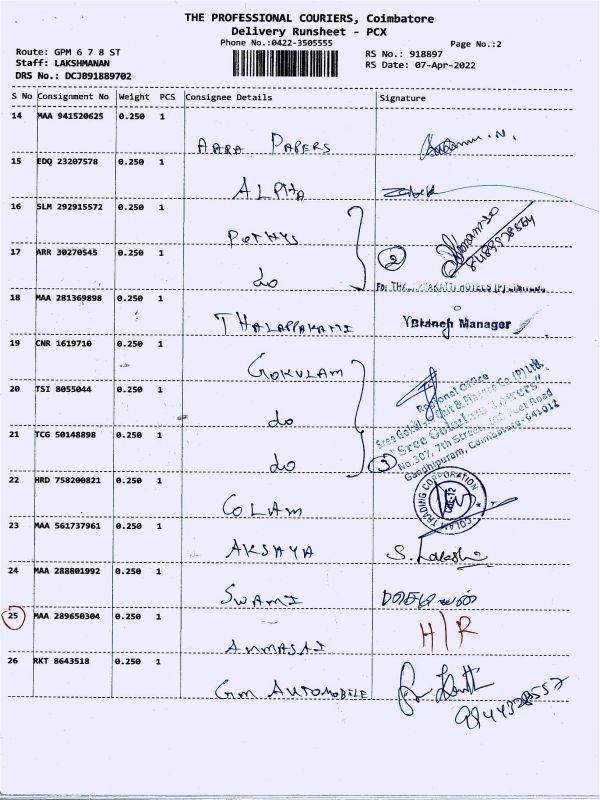 THE PROFESSIONAL COURIERS, Coimbatore
Delivery Runsheet - PCX
Phone No.:0422-3505555
Page No.:2
Route: GPM 6 7 8 ST
Staff: LAKSHMANAN
DRS No.: DCJB91889702
RS No.: 918897
RS Date: 07-Apr-2022
S No Consignment No Weight PCS Consignee Details Signature
14 MAA 941520625 0.250 1
AARA PAPERS
15 EDQ 23207578 0.250 1
ALPHA
16 SLM 292915572 0.250 1
POTHYS
17 ARR 30270545 0.250 1
do
2
18 MAA 281369898 0.250 1
THALAPPAKATTI
Branch Manager
19 CNR 1619710 0.250 1
GOKULAM
20 TSI 8055044 0.250 1
do
Regional Office
Sree Gokulam Chit & Finance Co.(P)Ltd.
"Sree Gokulam Towers"
No.307, 7th Street, 100 Feet Road
Gandhipuram, Coimbatore-641012
21 TCG 50148898 0.250 1
do
3
22 HRD 758200821 0.250 1
COLAM
COLAM TRADING CORPORATION
CBE-12
23 MAA 561737961 0.250 1
AKSHYA
24 MAA 288801992 0.250 1
SWAMI
25 MAA 289650304 0.250 1
ANMASAI
H/R
26 RKT 8643518 0.250 1
GM AUTOMOBILE
9944328557